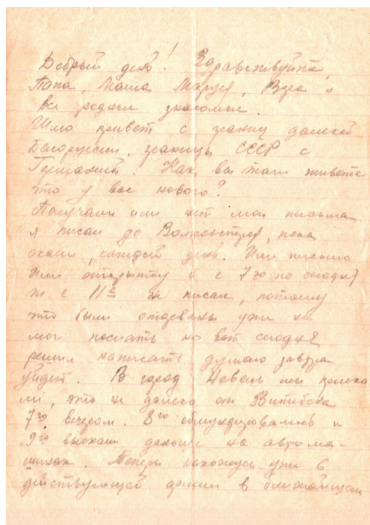 Добрый день! Здравствуйте,
Папа, Маша, Маруся, Вера и
все родные знакомые.
Шлю привет с границ далекой
Белоруссии, границы СССР с
Германией. Как вы там живете
что у вас нового?
Получали или нет мои письма
я писал до Волховстроя, пока
ехали, каждый день. Или письмо
или открытку а с 7го по сегодня
т. е 11е не писал, потому
что были отдел уже не
мог послать но вот сегодня
решил написать думаю завтра
уйдет. В город Невель мы приеха
ли, это не далеко от Витебска
7го вечером. 8го обмундировались и
9го выехали дальше на автома-
шинах. Теперь нахожусь уже в
действующей армии в ближайшем